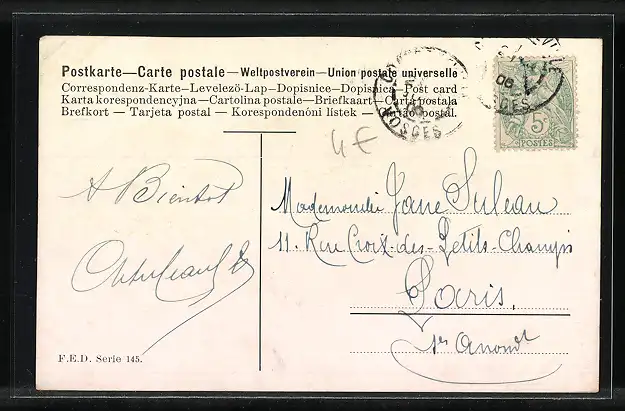 Postkarte—Carte postale—Weltpostverein—Union postale universelle
Correspondenz-Karte—Levelező-Lap—Dopisnice—Dopisnica—Post card
Karta korespondencyjna—Cartolina postale—Briefkaart—Carta postala
Brefkort — Tarjeta postal — Korespondenóni listek — postal.
4€
VOSGES
08
5c
POSTES
A Bientot
Mademoiselle Jane Suleau
11. Rue Croix-des-Petits-Champs
Paris.
1er Arrondt
F.E.D. Serie 145.